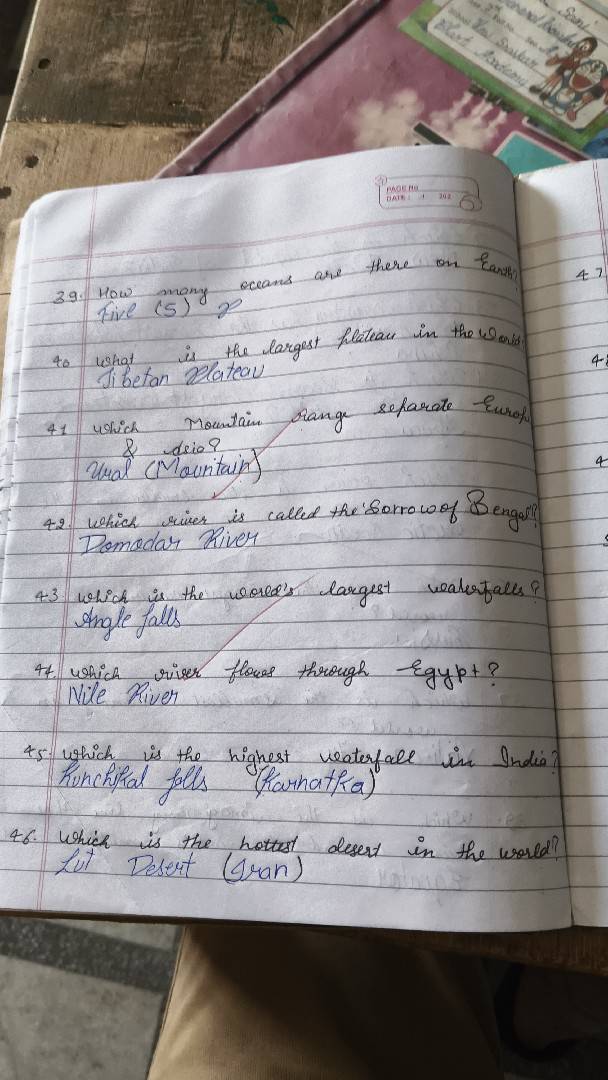 Son
Academy
PAGE No
DATE : 202
6
39. How many oceans are there on Earth?
Five (5)
40 what is the largest plateau in the World?
Tibetan Plateau
41 which Mountain range separate Europ
& Asia?
Ural (Mountain)
42. which river is called the "Sorrow of Bengal"?
Damodar River
43 which is the world's largest waterfalls?
Angle falls
44. which river flows through Egypt?
Nile River
45. which is the highest waterfall in India?
Kunchikal falls (Karnatka)
46. which is the hottest desert in the world?
Lut Desert (Iran)
47
48
4